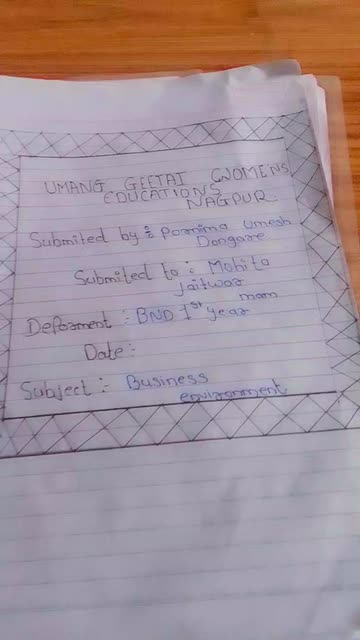 UMANG GEETAI WOMENS
EDUCATIONS
NAGPUR
Submited by :- Poornima Umesh
Dongare
Submited to :- Mohita
Jaitwar
mam
Deforment : BND 1st year
Date :
Subject :- Business
environment